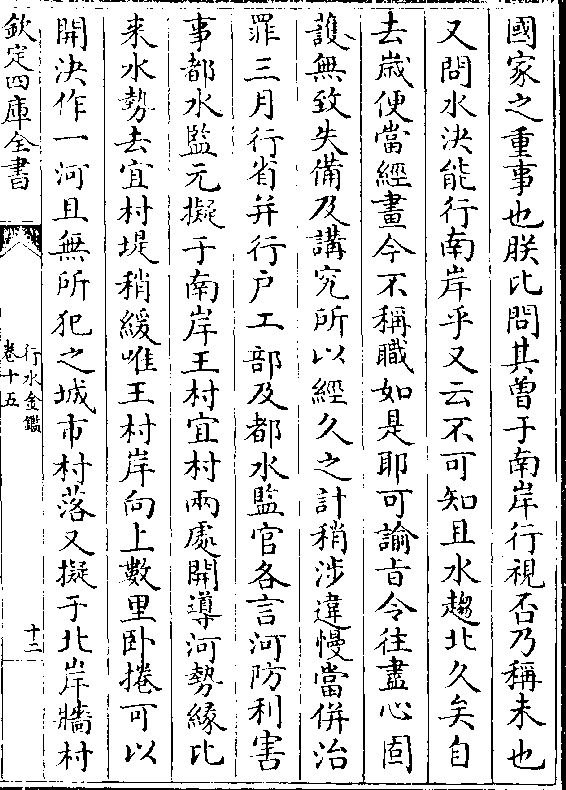 國家之重事也朕比問其曽于南岸行視否乃稱未也
又問水決能行南岸乎又云不可知且水趨北久矣自
去嵗便當經畫今不稱職如是耶可諭㫖令往盡心固
䕶無致失備及講究所以經久之計稍涉違慢當併治
罪三月行省并行户工部及都水監官各言河防利害
事都水監元擬于南岸王村宜村兩處開導河勢縁比
来水勢去宜村堤稍緩唯王村岸向上數里卧捲可以
開決作一河且無所犯之城市村落又擬于北岸牆村
欽定四庫全書
行水金鑑
卷十五
十二